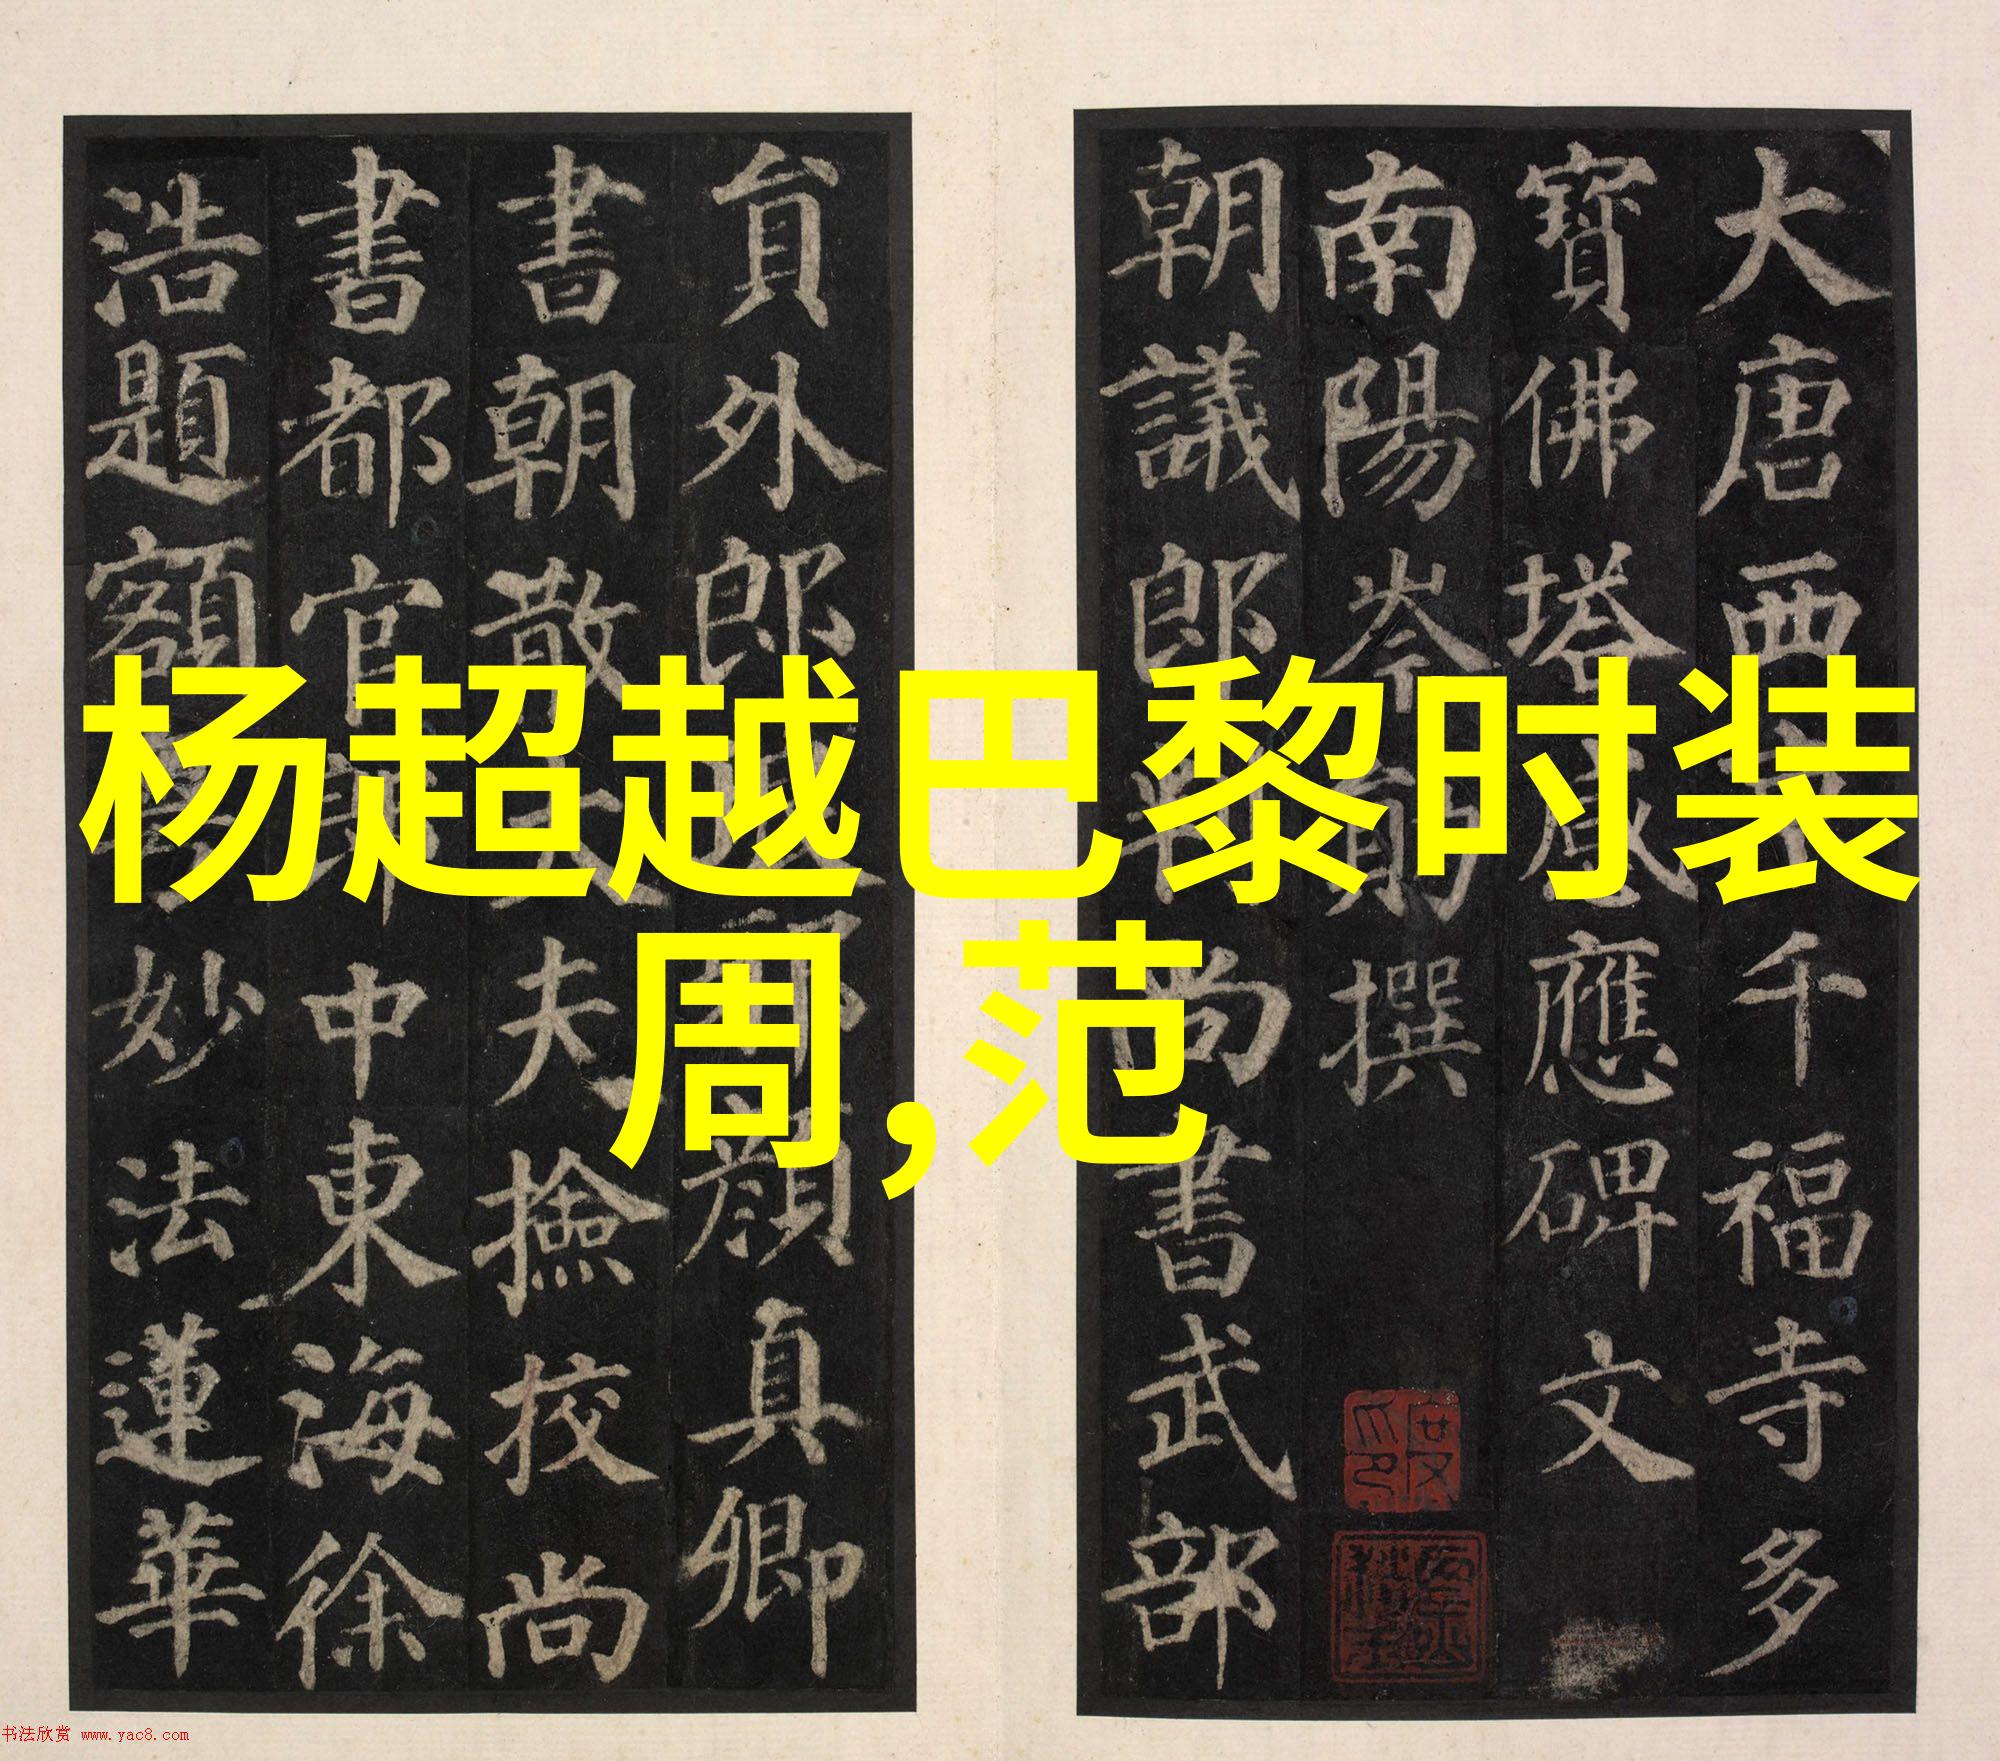 杨超越巴黎时装
周,范
大唐西京千福寺多
寶佛塔感應碑文
南陽岑勛撰
朝議郎判尚書武部
員外郎琅邪顏真卿
書朝散大夫撿校尚
書都官郎中東海徐
浩題額
妙法蓮華
书法欣赏 www.yac8.com